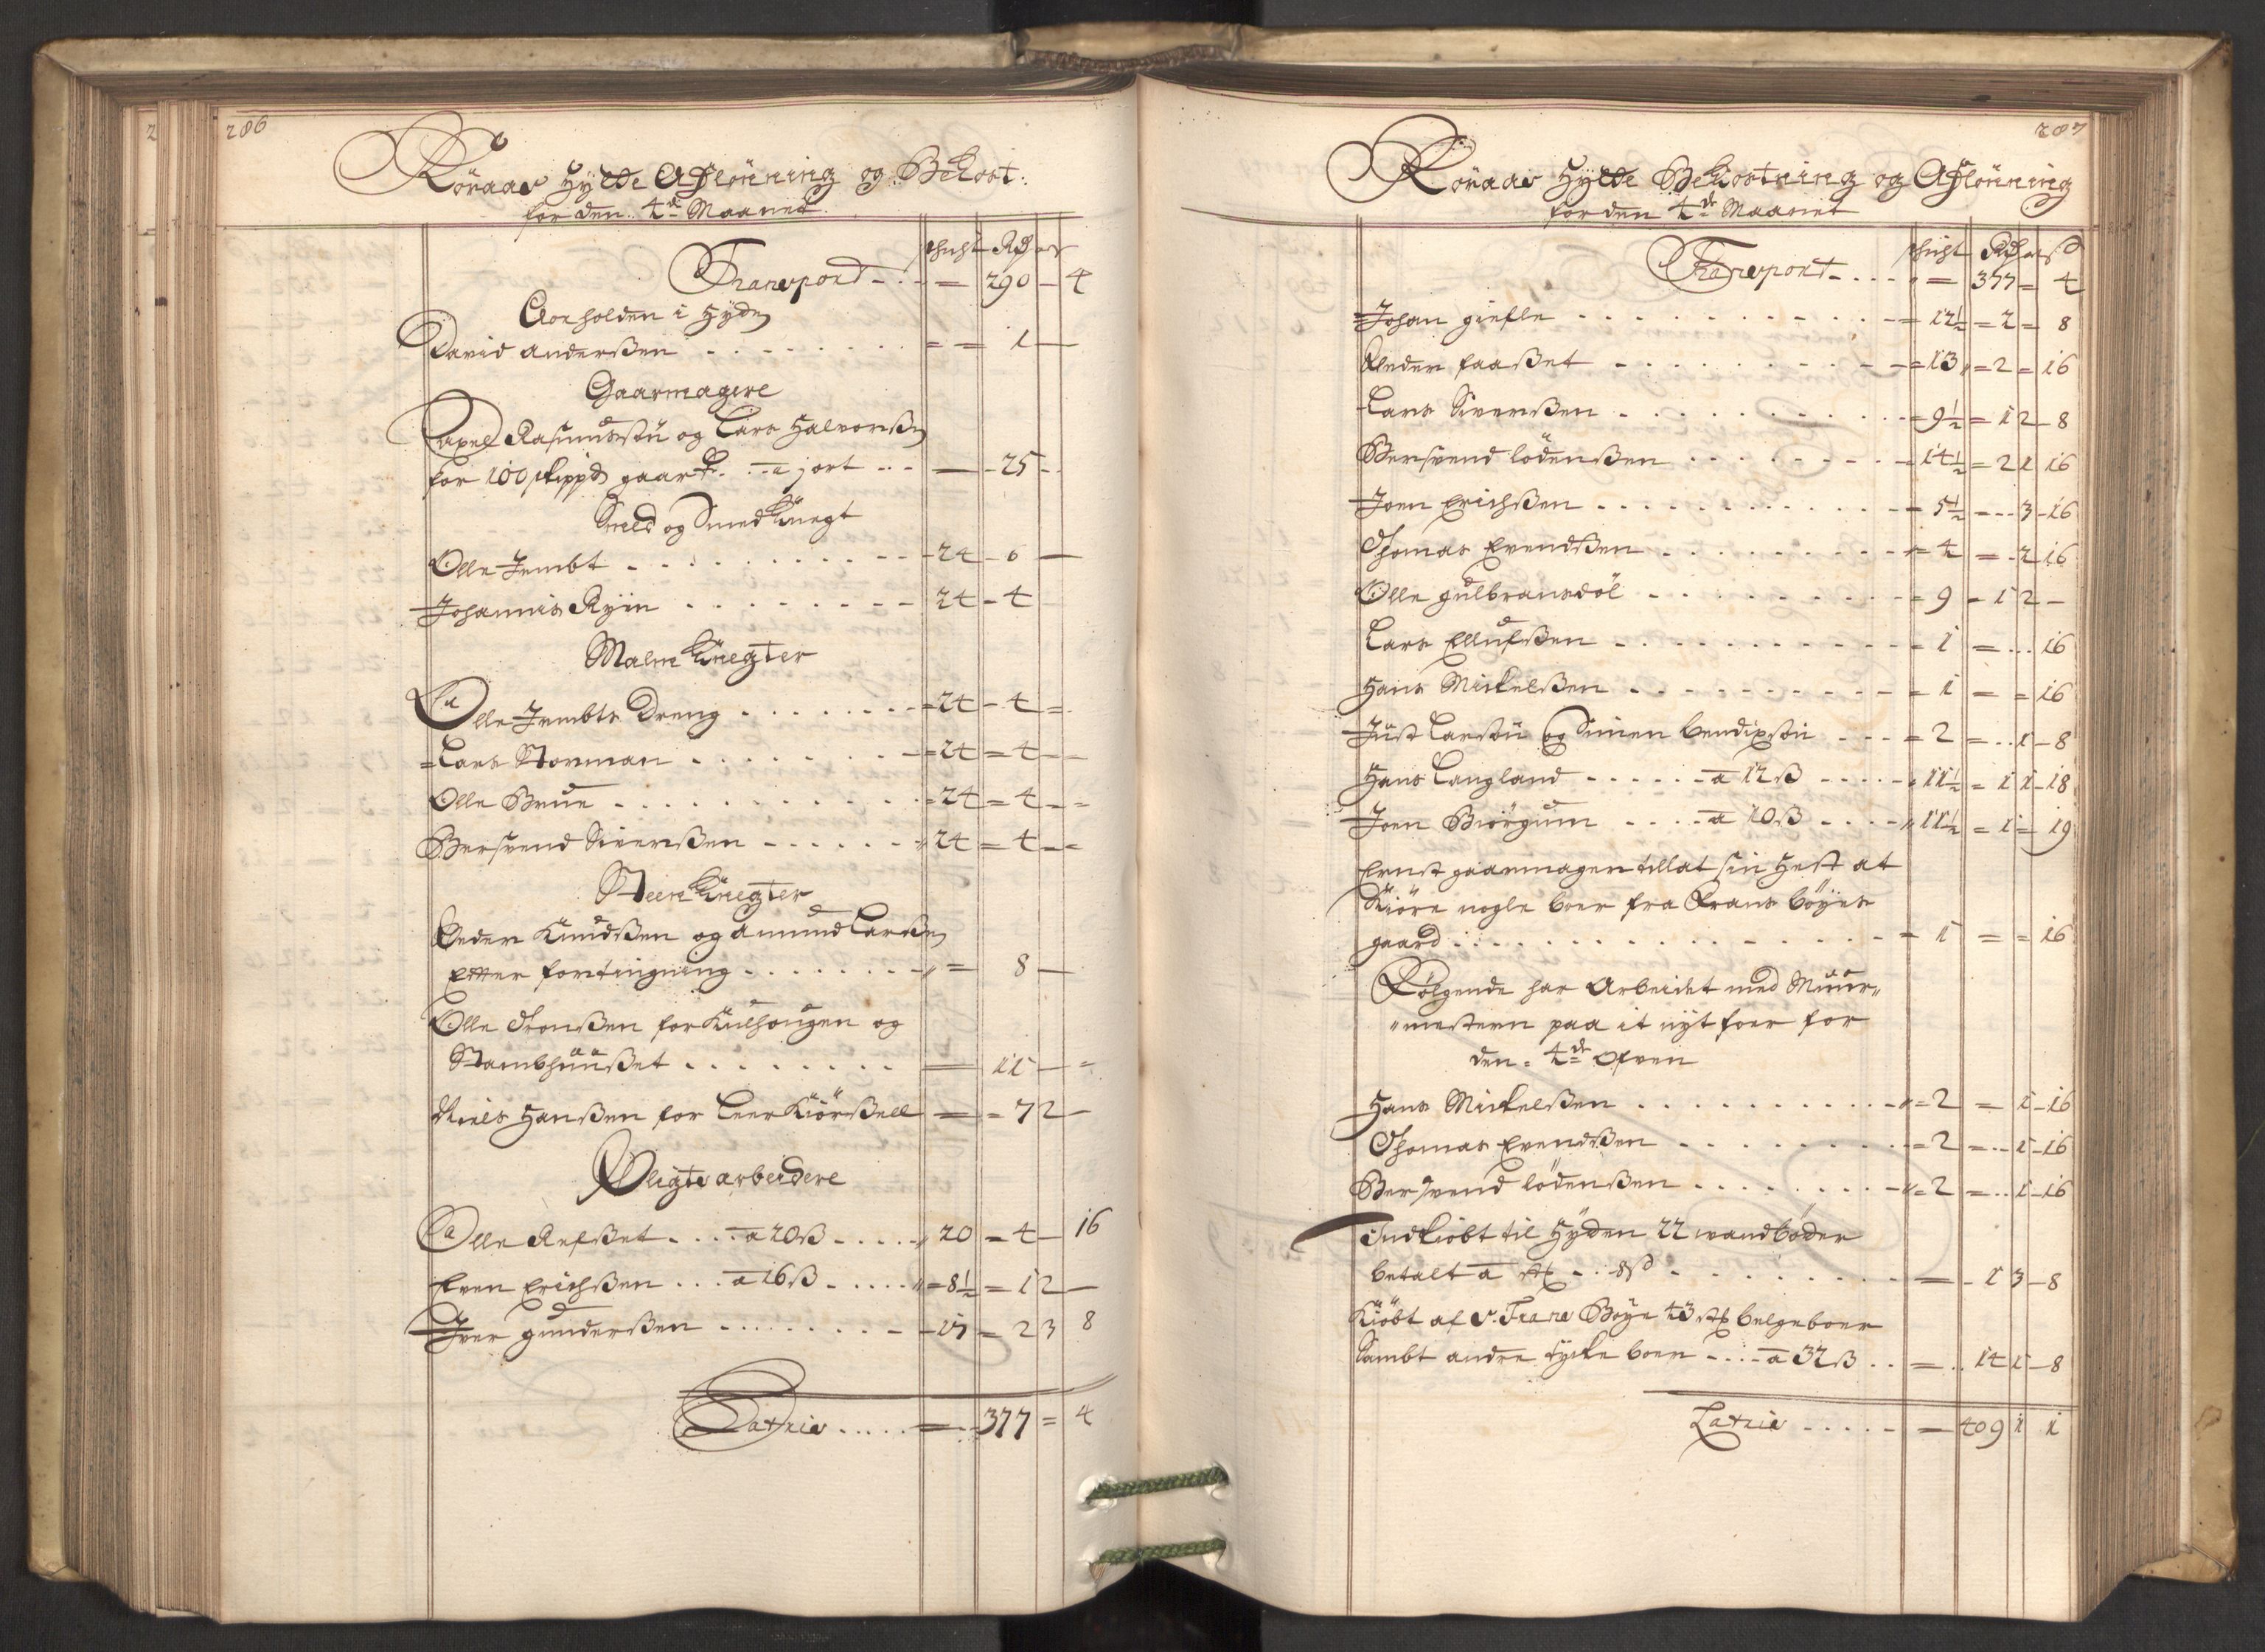 286
Röraas Hytte Afflönning og Bekost:
for den 4de Maanet
schicht Rd ort
Transport - - - = 290 - 4
Aarholden i Hyden
David Anderßen . . . . . . . . = = 1 —
Gaarmagere
Rasmusstü og Lars Halvorßen
for 100 skippd gaark. . . a j ort . . — - 25 - -
Smed og Smed Knegt
Olle Jembt . . . . . . . . - 24 - 6 —
Johannis Ryin . . . . . . . . - 24 - 4
Malm Knegter
Olle Jembts Dreng . . . . . . . = 24 - 4 =
Lars Storman . . . . . . . = 24 = 4 - -
Olle Brue . . . . . . . . . . . = 24 = 4 - =
Bersvend Siverßen . . . . . . " 24 = 4 - =
Steen Knegter
Peder Knudßen og Amund Larßen
Etter fortingning . . . . . . . " = 8 —
Olle Tronßen for Kulhougen og
Stambhuußet . . . . . . . . — 11 — =
Niels Hanßen for Leer Kiörßell = - 7 2 —
Pligts arbeidere
Olle Refßet . . . . a 20ß . . . . . " 20 = 4 — 16
Even Erichßen . . . a 16ß . . . . . " = 8½ = 1 2 —
Iver Gunderßen . . . . . . . . . - 17 = 2 3 8
Latris . . . . . = - 377 = 4
287
Röraas Hytte Bekostning og Afflönning
for den 4de Maanet
schicht Rd ort ß
Transport - . . . . " = 377 = 4
Johan giefle . . . . . . . . . . . = 12½ = 2 = 8
Peder faaßet . . . . . . . . . . = 13 " = 2 = 16
Lars Siverßen . . . . . . . . . . = 9½ = 1 2 - 8
Bersvend lödenßen . . . . . . . . = 14½ = 2 1 16
Joen Erichßen . . . . . . . . . . . = 5½ = - - 3 - 16
Thomas Evendßen . . . . . . . . . = 4 = - 2 16
Olle gulbransdöl . . . . . . . . . = 9 = 1 2 —
Lars Ellufßen . . . . . . . . . . = 1 = . . . 16
Hans Mickelßen . . . . . . . . . . = 1 = = 16
Just Larstü og Simen bendixstü . . . = 2 = . . 1 - 8
Hans Langland . . . . . . a 12ß . . . . . " 11½ = 1 1 - 18
Joen Biörgum . . . . a 10ß . . . . " 11½ = 1 = 19
Ernst gaarmager tillat sin Hest at
Kiöre nogle boer fra Frans böyes
gaard . . . . . . . . . . . . . . . . . = 1 = = 16
Fölgende har Arbeidet med Muur"
"mestern paa it nyt foer for
den = 4de ofven
Hans Mickelßen . . . . . . . . . . . " = 2 = 1 - 16
Thomas Evendßen . . . . . . . . . = 2 = - - 1 - 16
Bersvend lödenßen . . . . . . . . " = 2 = . . 1 - 16
Indkiöbt til Hyden 22 wandböder
betalt a st . . 8ß . . . . . . . . — - 1 3 - 8
Kiöbt af S. Frans Böye 43 st belgeboer
Sambt andre tycke boer . . . . a 32ß . . = . . 14 1 - 8
Latris . . . . . — 409 1 1